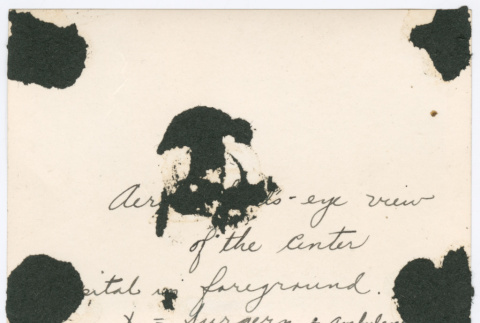 Aer s-eye view
of the Center
pital in foreground.
X = Surgery